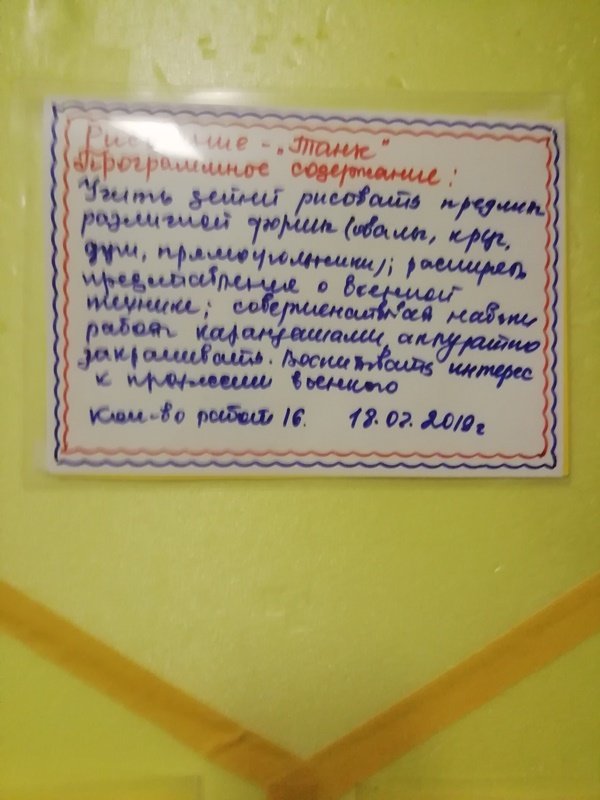 Рисование - „Танк"
Программное содержание:
Учить детей рисовать предметы
различной формы (овалы, круг,
дуги, прямоугольники); расширять
представления о военной
технике; совершенствовать навыки
работы карандашами, аккуратно
закрашивать. Воспитывать интерес
к профессии военного
Кол-во работ 16. 18.02.2019г